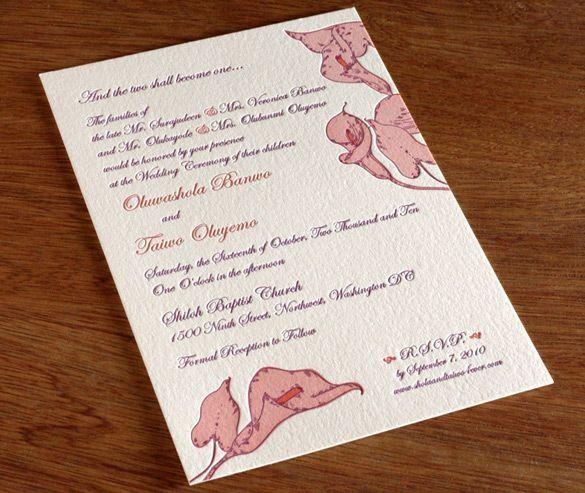 And the two shall become one...
The families of
the late Mr. Surajudeen & Mrs. Veronica Banwo
and Mr. Olukayode & Mrs. Olubunmi Oluyemo
would be honored by your presence
at the Wedding Ceremony of their children
Oluwashola Banwo
and
Taiwo Oluyemo
Saturday, the Sixteenth of October, Two Thousand and Ten
One O'clock in the afternoon
Shiloh Baptist Church
1500 Ninth Street, Northwest, Washington DC
Formal Reception to Follow
R.S.V.P.
by September 7, 2010
www.sholaandtaiwo4ever.com